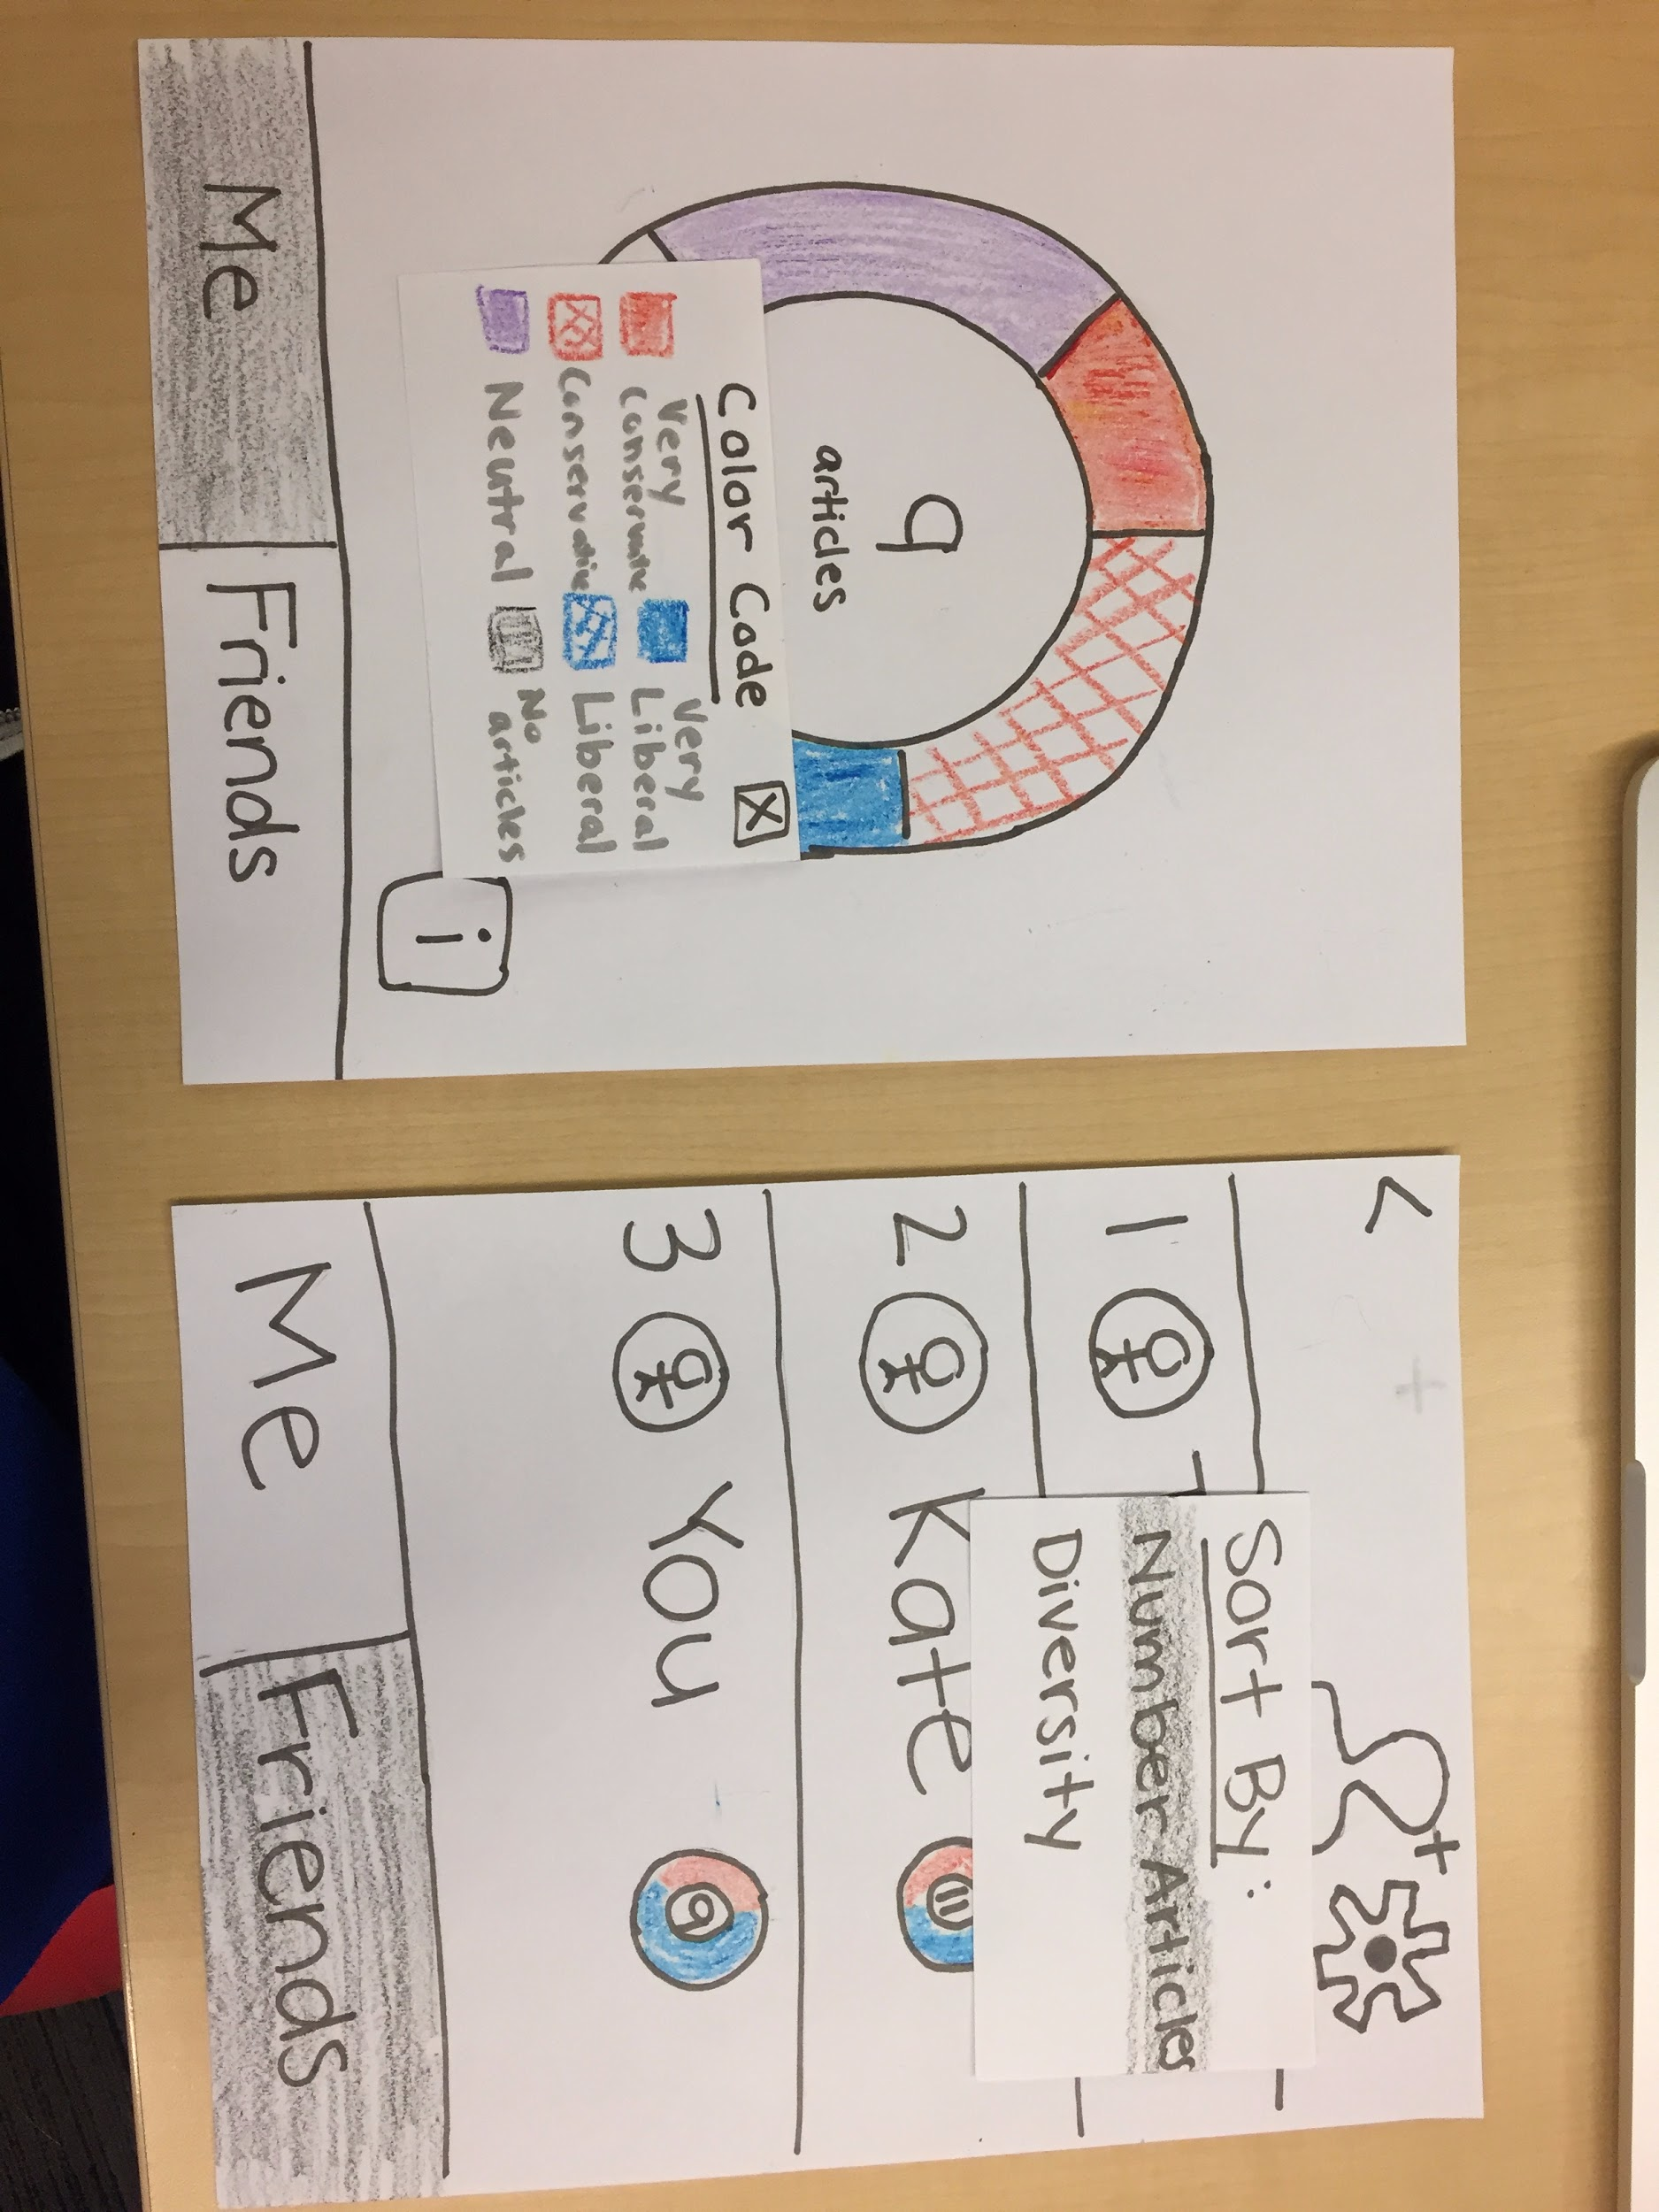 9
articles
Color Code
X
Very
Conservative
Very
Liberal
Conservative
Liberal
Neutral
No
articles
i
Me
Friends
<
+
+
Sort By:
Number Articles
Diversity
1
2
Kate
11
3
You
9
Me
Friends